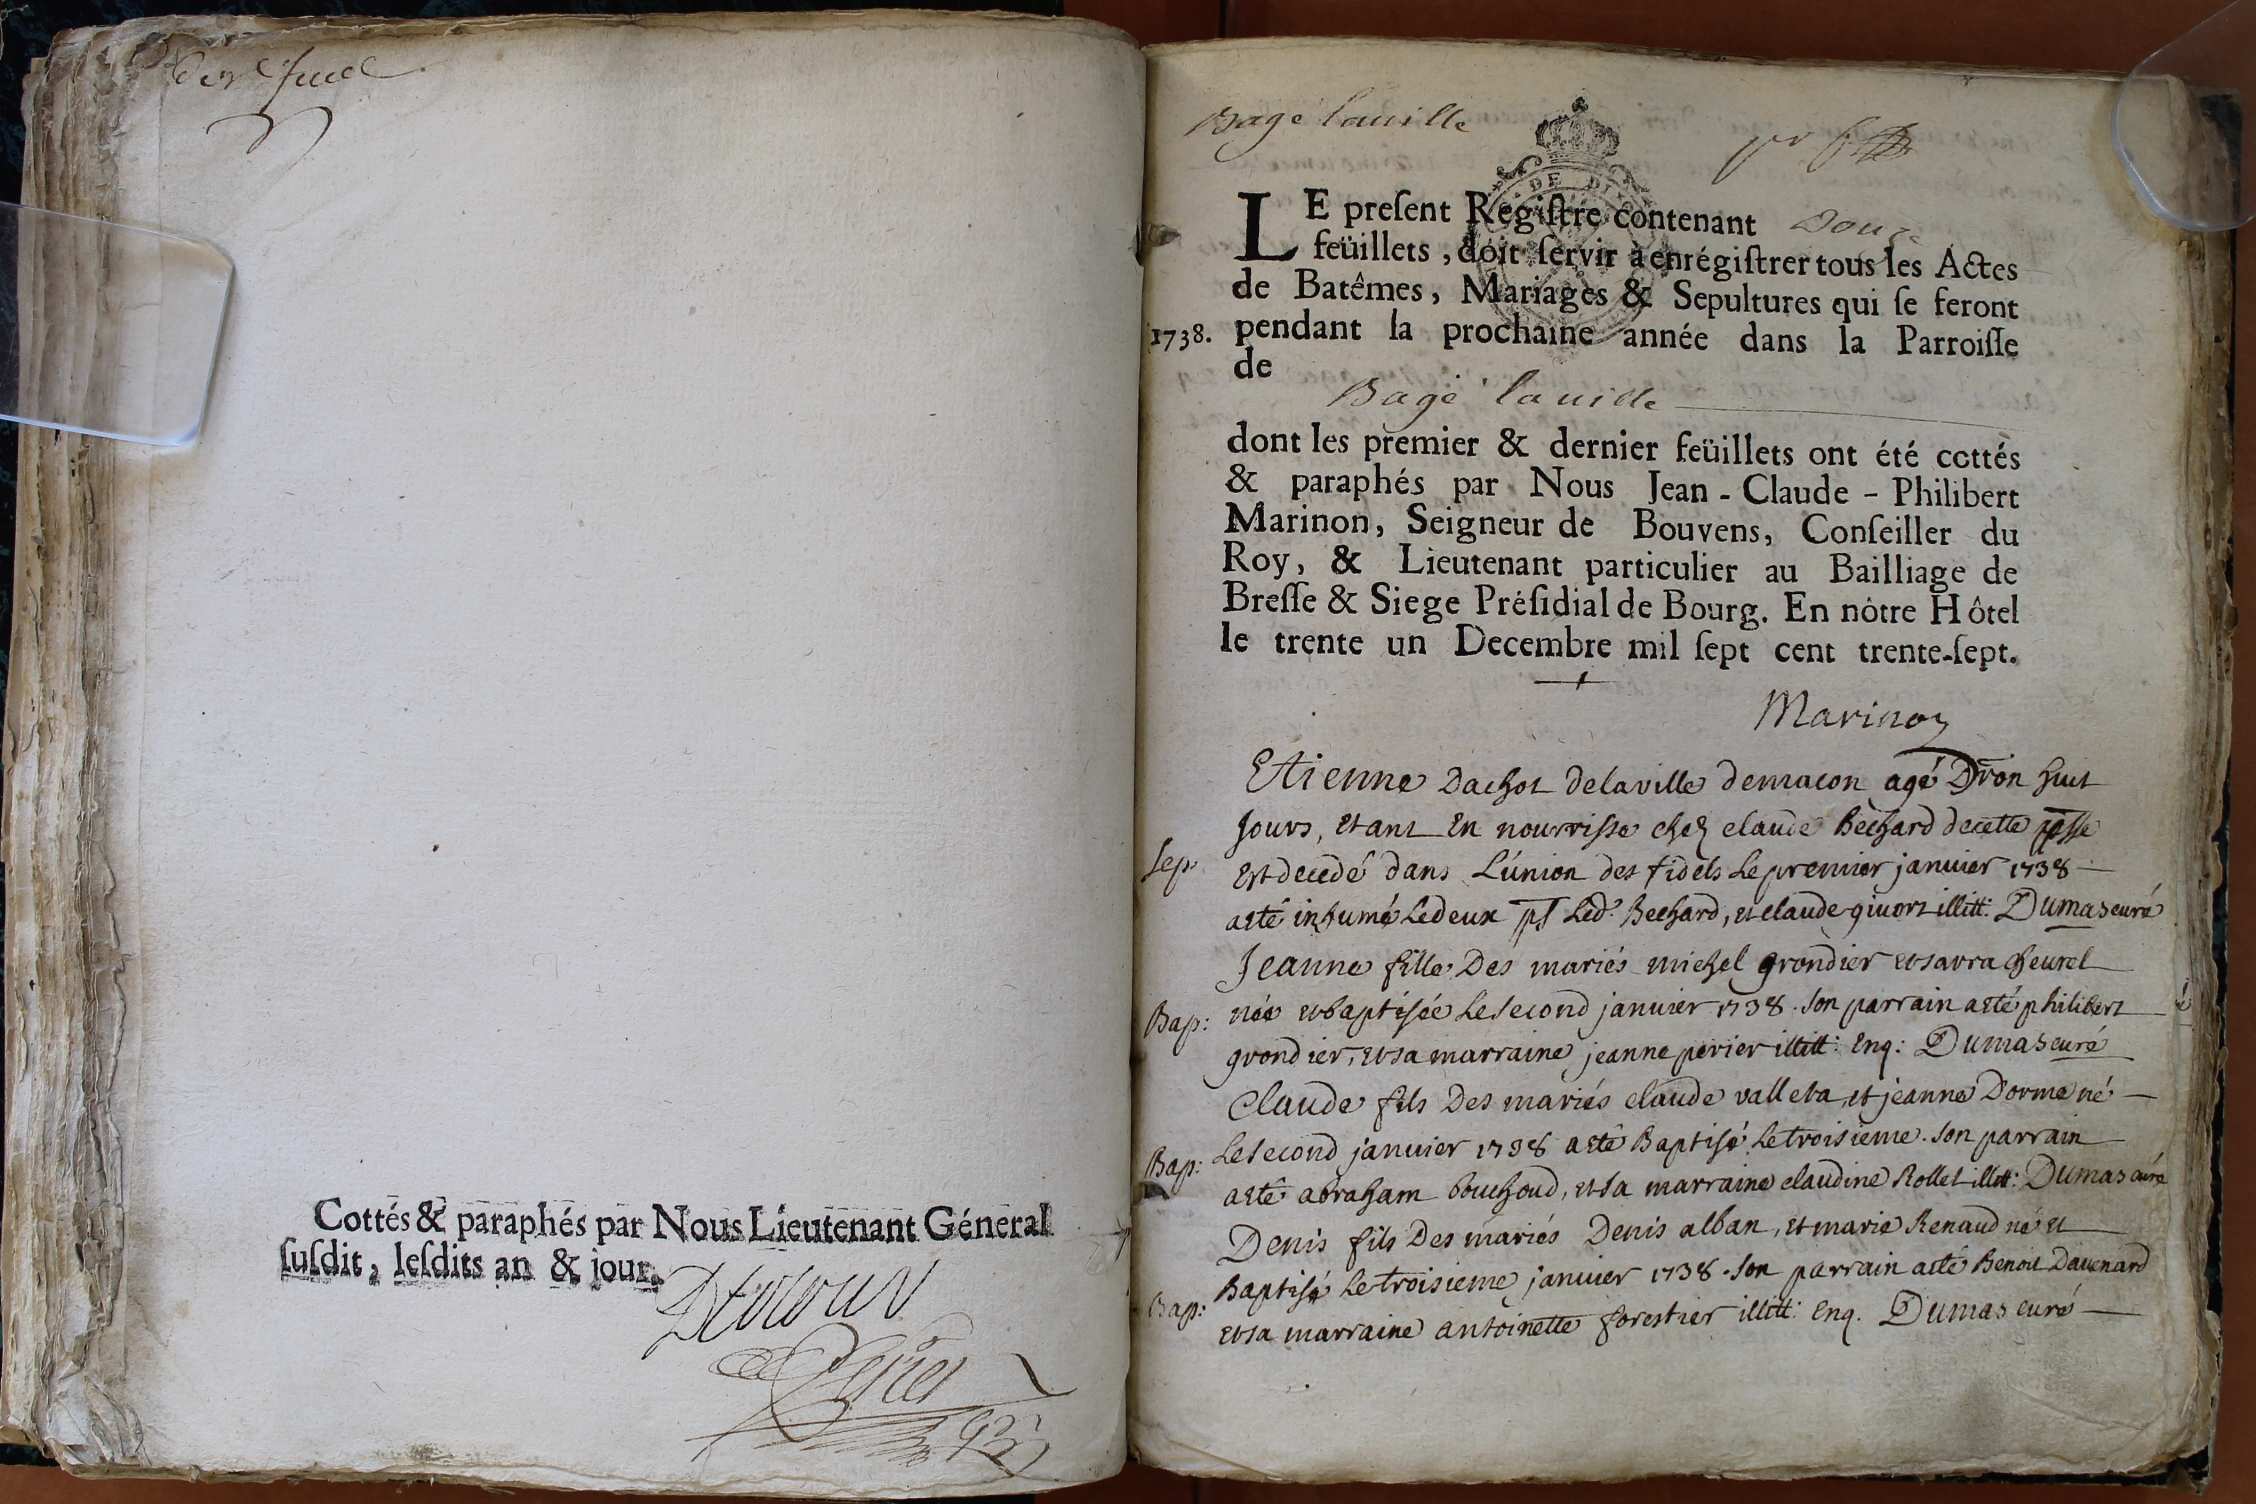 Cottés & paraphés par Nous Lieutenant Géneral
ſuſdit, leſdits an & jour.
Bagé lauille
LE preſent Regiſtre contenant Douze
feüillets, doit ſervir à enrégiſtrer tous les Actes
de Batêmes, Mariages & Sepultures qui ſe feront
1738. pendant la prochaine année dans la Parroiſſe
de
Bagé lauille
dont les premier & dernier feüillets ont été cottés
& paraphés par Nous Jean-Claude-Philibert
Marinon, Seigneur de Bouvens, Conſeiller du
Roy, & Lieutenant particulier au Bailliage de
Breſſe & Siege Préſidial de Bourg. En nôtre Hôtel
le trente un Decembre mil ſept cent trente-ſept.
Marinon
Etienne Dachot delaville demacon agé D'iron huit
Jours, Etant En nourrisse chez claude Bechard decette psse
Sep. Est decedé dans L'union des fidels Le premier janvier 1738
aeté inhumé Le deux pt Led. Bechard, et claude givort illitt: Dumas curé
Jeanne fille Des mariés michel grondier et sarra cheurel
Bap: née et baptisée Le second janvier 1738. Son parrain aeté philibert
grondier, et sa marraine jeanne perier illitt: Enq: Dumas curé
Claude fils Des mariés claude valleta, et jeanne Dorme né
Bap: Le second janvier 1738 aeté Baptisé Le troisieme. Son parrain
aeté abraham bouchoud, et sa marraine claudine Rollet illitt: Dumas curé
Denis fils Des mariés Denis alban, et marie Renaud né et
Bap: Baptisé Le troisieme janvier 1738. Son parrain aeté Benoit Davenard
et sa marraine antoinette forestier illitt: Enq. Dumas curé